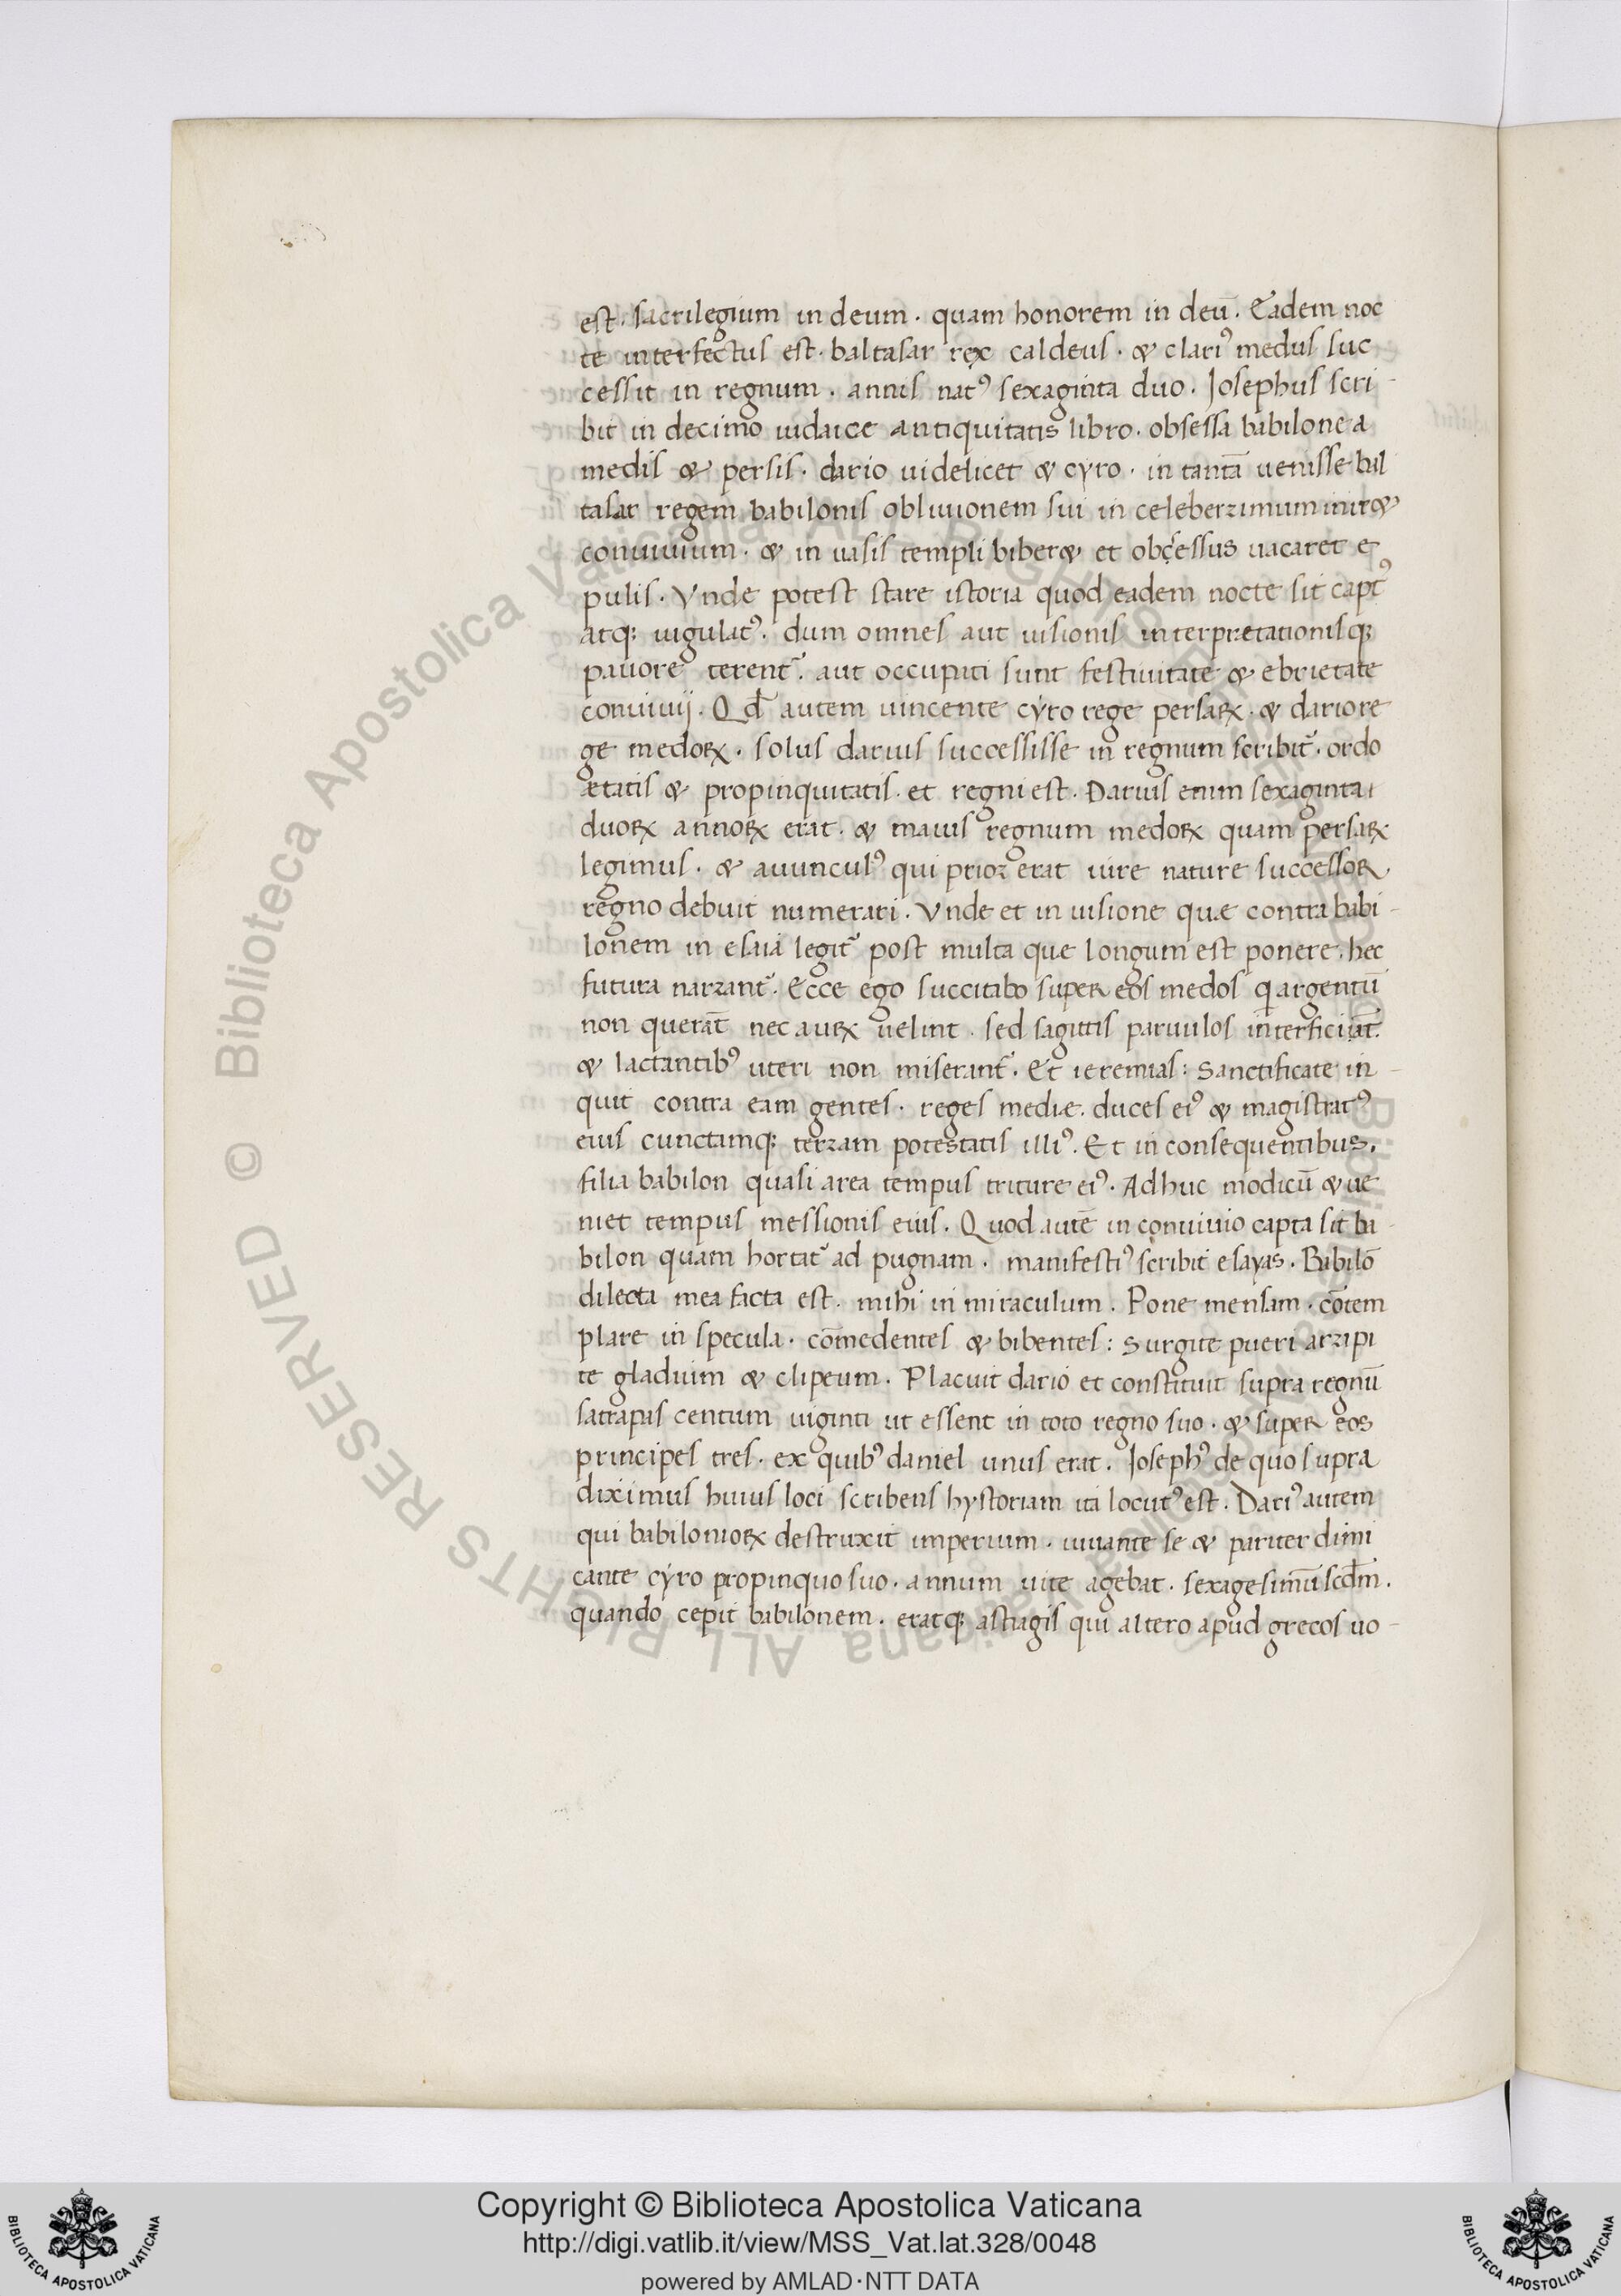 est. sacrilegium in deum. quam honorem in deū. Eadem noc
te interfectus est. baltasar rex caldeus. & clariꝰ medus suc
cessit in regnum. annis natꝰ sexaginta duo. Josephus scri-
bit in decimo iudaice antiquitatis libro. obsessa babilone a
medis & persis. dario uidelicet & cyro. in tantā uenisse bal
tasar regem babilonis obliuionem sui in celeberrimum inir&
conuiuium. & in uasis templi biber& et obcessus uacaret e
pulis. Vnde potest stare istoria quod eadem nocte sit captꝰ
atq; iugulatꝰ. dum omnes aut uisionis interpretationisq;
pauore terent᷑. aut occupati sunt festiuitate & ebrietate
conuiuij. Qđ autem uincente cyro rege persaꝝ. & dario re
ge medoꝝ. solus darius successisse in regnum scribit᷑. ordo
ætatis & propinquitatis. et regni est. Darius enim sexaginta
duoꝝ annoꝝ erat. & maius regnum medoꝝ quam persaꝝ
legimus. & auunculꝰ qui prior erat iure nature successor
regno debuit numerari. Vnde et in uisione quæ contra babi-
lonem in esaia legit᷑ post multa que longum est ponere. hec
futura narrant᷑. Ecce ego succitabo super eos medos q argentū
non querāt nec auꝝ uelint. sed sagittis paruulos interficiāt.
& lactantibꝰ uteri non miserant᷑. Et ieremias: Sanctificate in-
quit contra eam gentes. reges mediæ. duces eiꝰ & magistratꝰ
eius cunctamq; terram potestatis illiꝰ. Et in consequentibus.
filia babilon quasi area tempus triture eiꝰ. Adhuc modicū & ue
niet tempus messionis eius. Quod autē in conuiuio capta sit ba-
bilon quam hortat᷑ ad pugnam. manifestiꝰ scribit esayas. Babilō
dilecta mea facta est. mihi in miraculum. Pone mensam. cōtem
plare in specula. cōmedentes & bibentes: Surgite pueri arripi
te gladium & clipeum. Placuit dario et constituit supra regnū
satrapas centum uiginti ut essent in toto regno suo. & super eos
principes tres. ex quibꝰ daniel unus erat. Josephꝰ de quo supra
diximus huius loci scribens hystoriam ita locutꝰ est. Dariꝰ autem
qui babilonioꝝ destruxit imperium. iuuante se & pariter dimi
cante cyro propinquo suo. annum uite agebat. sexagesimū scđm.
quando cepit babilonem. eratq; astiagis qui altero apud grecos uo-
© Biblioteca Apostolica Vaticana ALL RIGHTS RESERVED
Copyright © Biblioteca Apostolica Vaticana
http://digi.vatlib.it/view/MSS_Vat.lat.328/0048
powered by AMLAD·NTT DATA
BIBLIOTECA APOSTOLICA VATICANA
BIBLIOTECA APOSTOLICA VATICANA